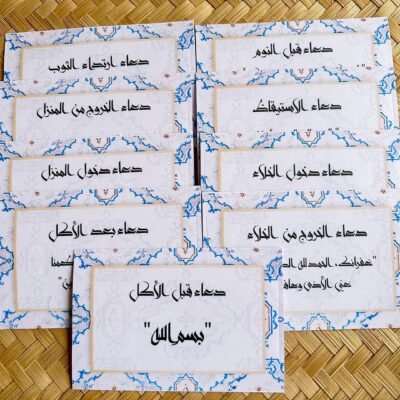 دعاء قبل النوم
دعاء ارتداء الثوب
دعاء الاستيقاظ
دعاء الخروج من المنزل
دعاء دخول الخلاء
دعاء دخول المنزل
دعاء الخروج من الخلاء
"غفرانك، الحمد لله
عني الأذى
دعاء بعد الأكل
دعاء قبل الأكل
"بسم الله"